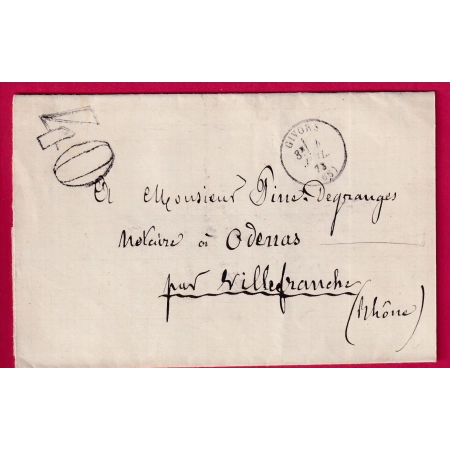 40
GIVORS
73
A Monsieur Pine-Degranges
Notaire à Odenas
par Villefranche
(Rhône)